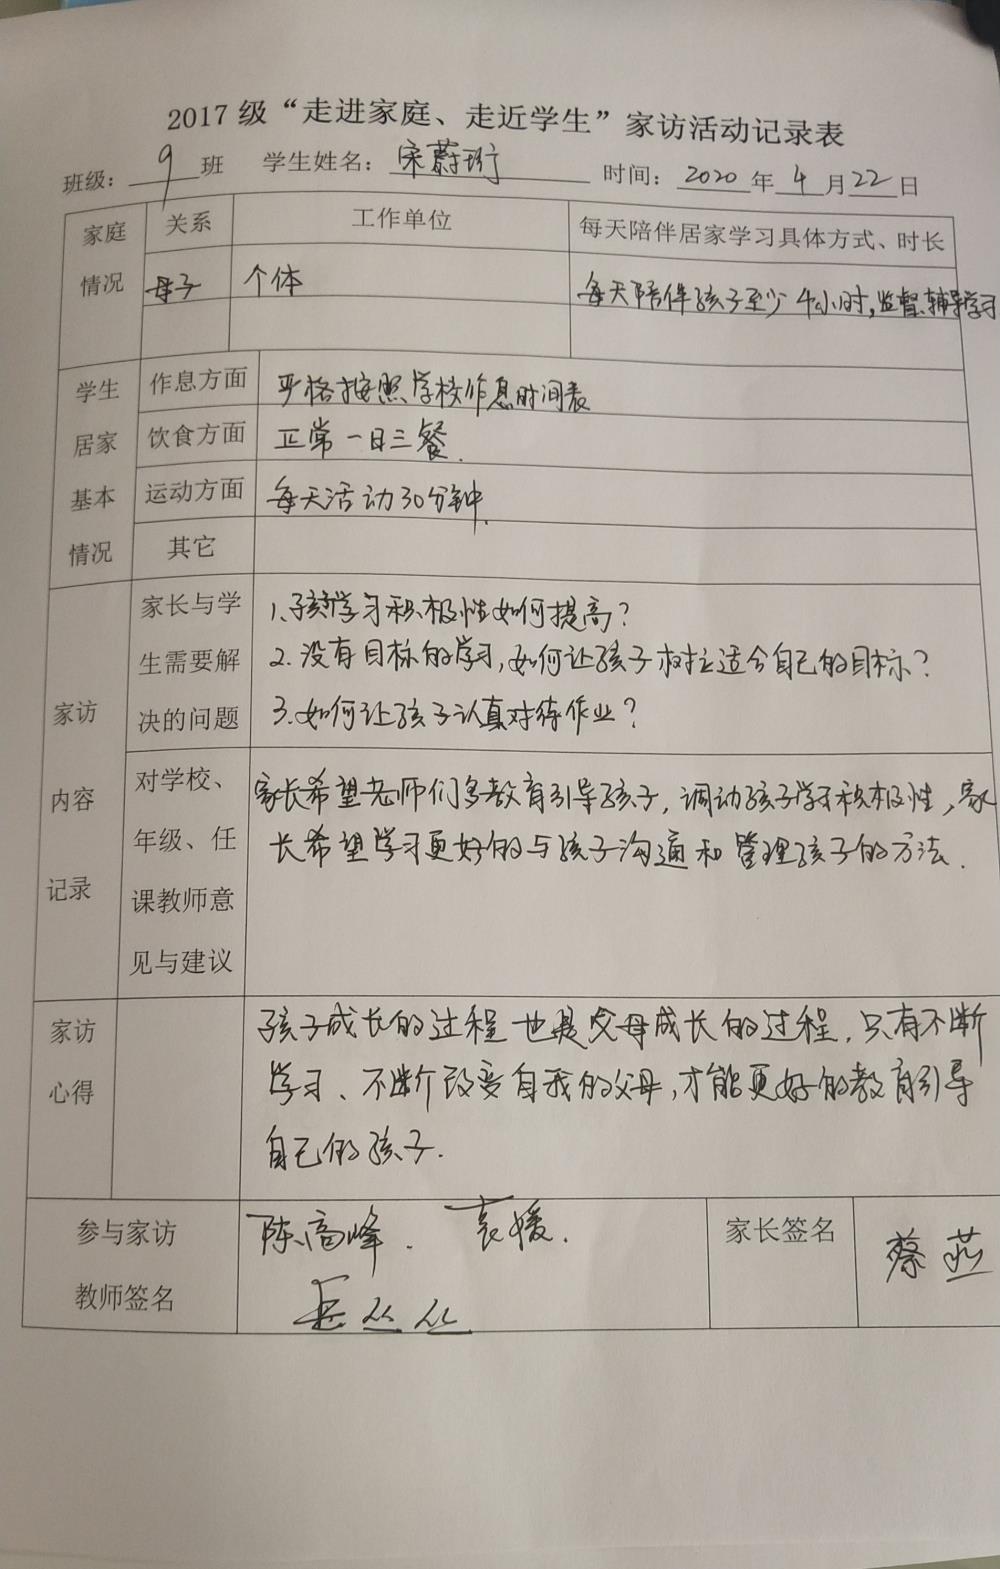 2017 级“走进家庭、走近学生”家访活动记录表
班级：9 班 学生姓名：宋蔚珩 时间：2020 年 4 月 22 日
家庭 关系 工作单位 每天陪伴居家学习具体方式、时长
情况 母子 个体 每天陪伴孩子至少4小时，监督、辅导学习
学生 作息方面 严格按照学校作息时间表
居家 饮食方面 正常一日三餐.
基本 运动方面 每天活动30分钟.
情况 其它
家长与学 1、孩子学习积极性如何提高？
生需要解 2. 没有目标的学习，如何让孩子树立适合自己的目标？
家访 决的问题 3.如何让孩子认真对待作业？
对学校、 家长希望老师们多教育引导孩子，调动孩子学习积极性，家
内容
年级、任 长希望学习更好的与孩子沟通和管理孩子的方法.
记录 课教师意
见与建议
家访 孩子成长的过程也是父母成长的过程，只有不断
心得 学习、不断改变自我的父母，才能更好的教育引导
自己的孩子.
参与家访 陈高峰. 袁媛. 家长签名 蔡燕
教师签名